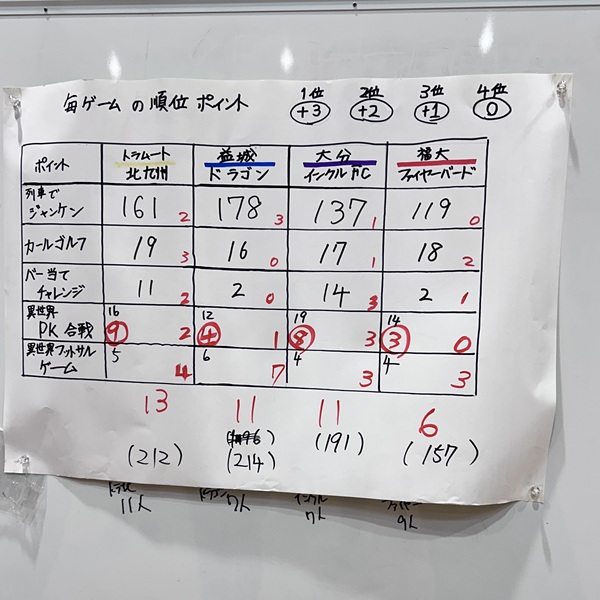 毎ゲームの順位ポイント
1位 2位 3位 4位
+3 +2 +1 0
ポイント トラムート北九州 益城ドラゴン 大分インクルFC 福大ファイヤーバード
列車でジャンケン 161 2 178 3 137 1 119 0
カールゴルフ 19 3 16 0 17 1 18 2
バー当てチャレンジ 11 2 2 0 14 3 2 1
異世界PK合戦 16 9 2 12 4 1 19 8 3 14 3 0
異世界フットサルゲーム 5 4 6 7 4 3 4 3
13 11 11 6
(212) (214) (191) (157)
11人 7人 7人 9人